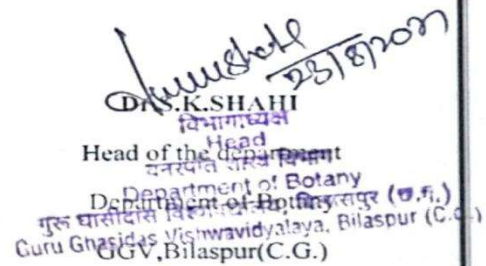 23/8/2021
Dr.S.K.SHAHI
विभागाध्यक्ष
Head
Head of the department
वनस्पति शास्त्र विभाग
Department of Botany
Department of Botany
गुरू घासीदास विश्वविद्यालय, बिलासपुर (छ.ग.)
Guru Ghasidas Vishwavidyalaya, Bilaspur (C.G.)
GGV,Bilaspur(C.G.)